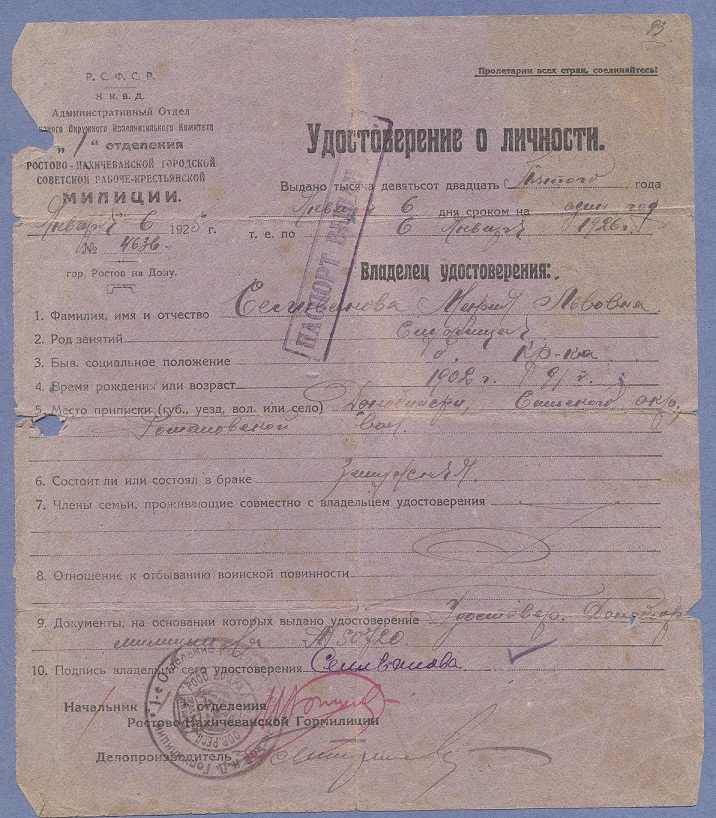 93
Пролетарии всех стран, соединяйтесь!
Р. С. Ф. С. Р.
Н. К. В. Д.
Административный Отдел
ского Окружного Исполнительного Комитета
„ 1 “ отделения
РОСТОВО-НАХИЧЕВАНСКОЙ ГОРОДСКОЙ
СОВЕТСКОЙ РАБОЧЕ-КРЕСТЬЯНСКОЙ
МИЛИЦИИ.
Январь 6 1925 г.
№ 4636
гор. Ростов на Дону.
Удостоверение о личности.
Выдано тысяча девятьсот двадцать Пятого года
Января 6 дня сроком на один год
т. е. по 6 Января 1926 г.
ПАСПОРТ
Владелец удостоверения:
1. Фамилия, имя и отчество Селиванова Мария Львовна
2. Род занятий
3. Быв. социальное положение кр-ка
4. Время рождения или возраст 1902 г.
5. Место приписки (губ., уезд, вол. или село) Донобласти, Сальского окр,
Романовской вол.
6. Состоит ли или состоял в браке Замужняя.
7. Члены семьи, проживающие совместно с владельцем удостоверения
8. Отношение к отбыванию воинской повинности
9. Документы, на основании которых выдано удостоверение Удостовер.
милиции № 50720
10. Подпись владельца сего удостоверения Селиванова.
Начальник 1 отделения
Ростово-Нахичеванской Гормилиции
Делопроизводитель